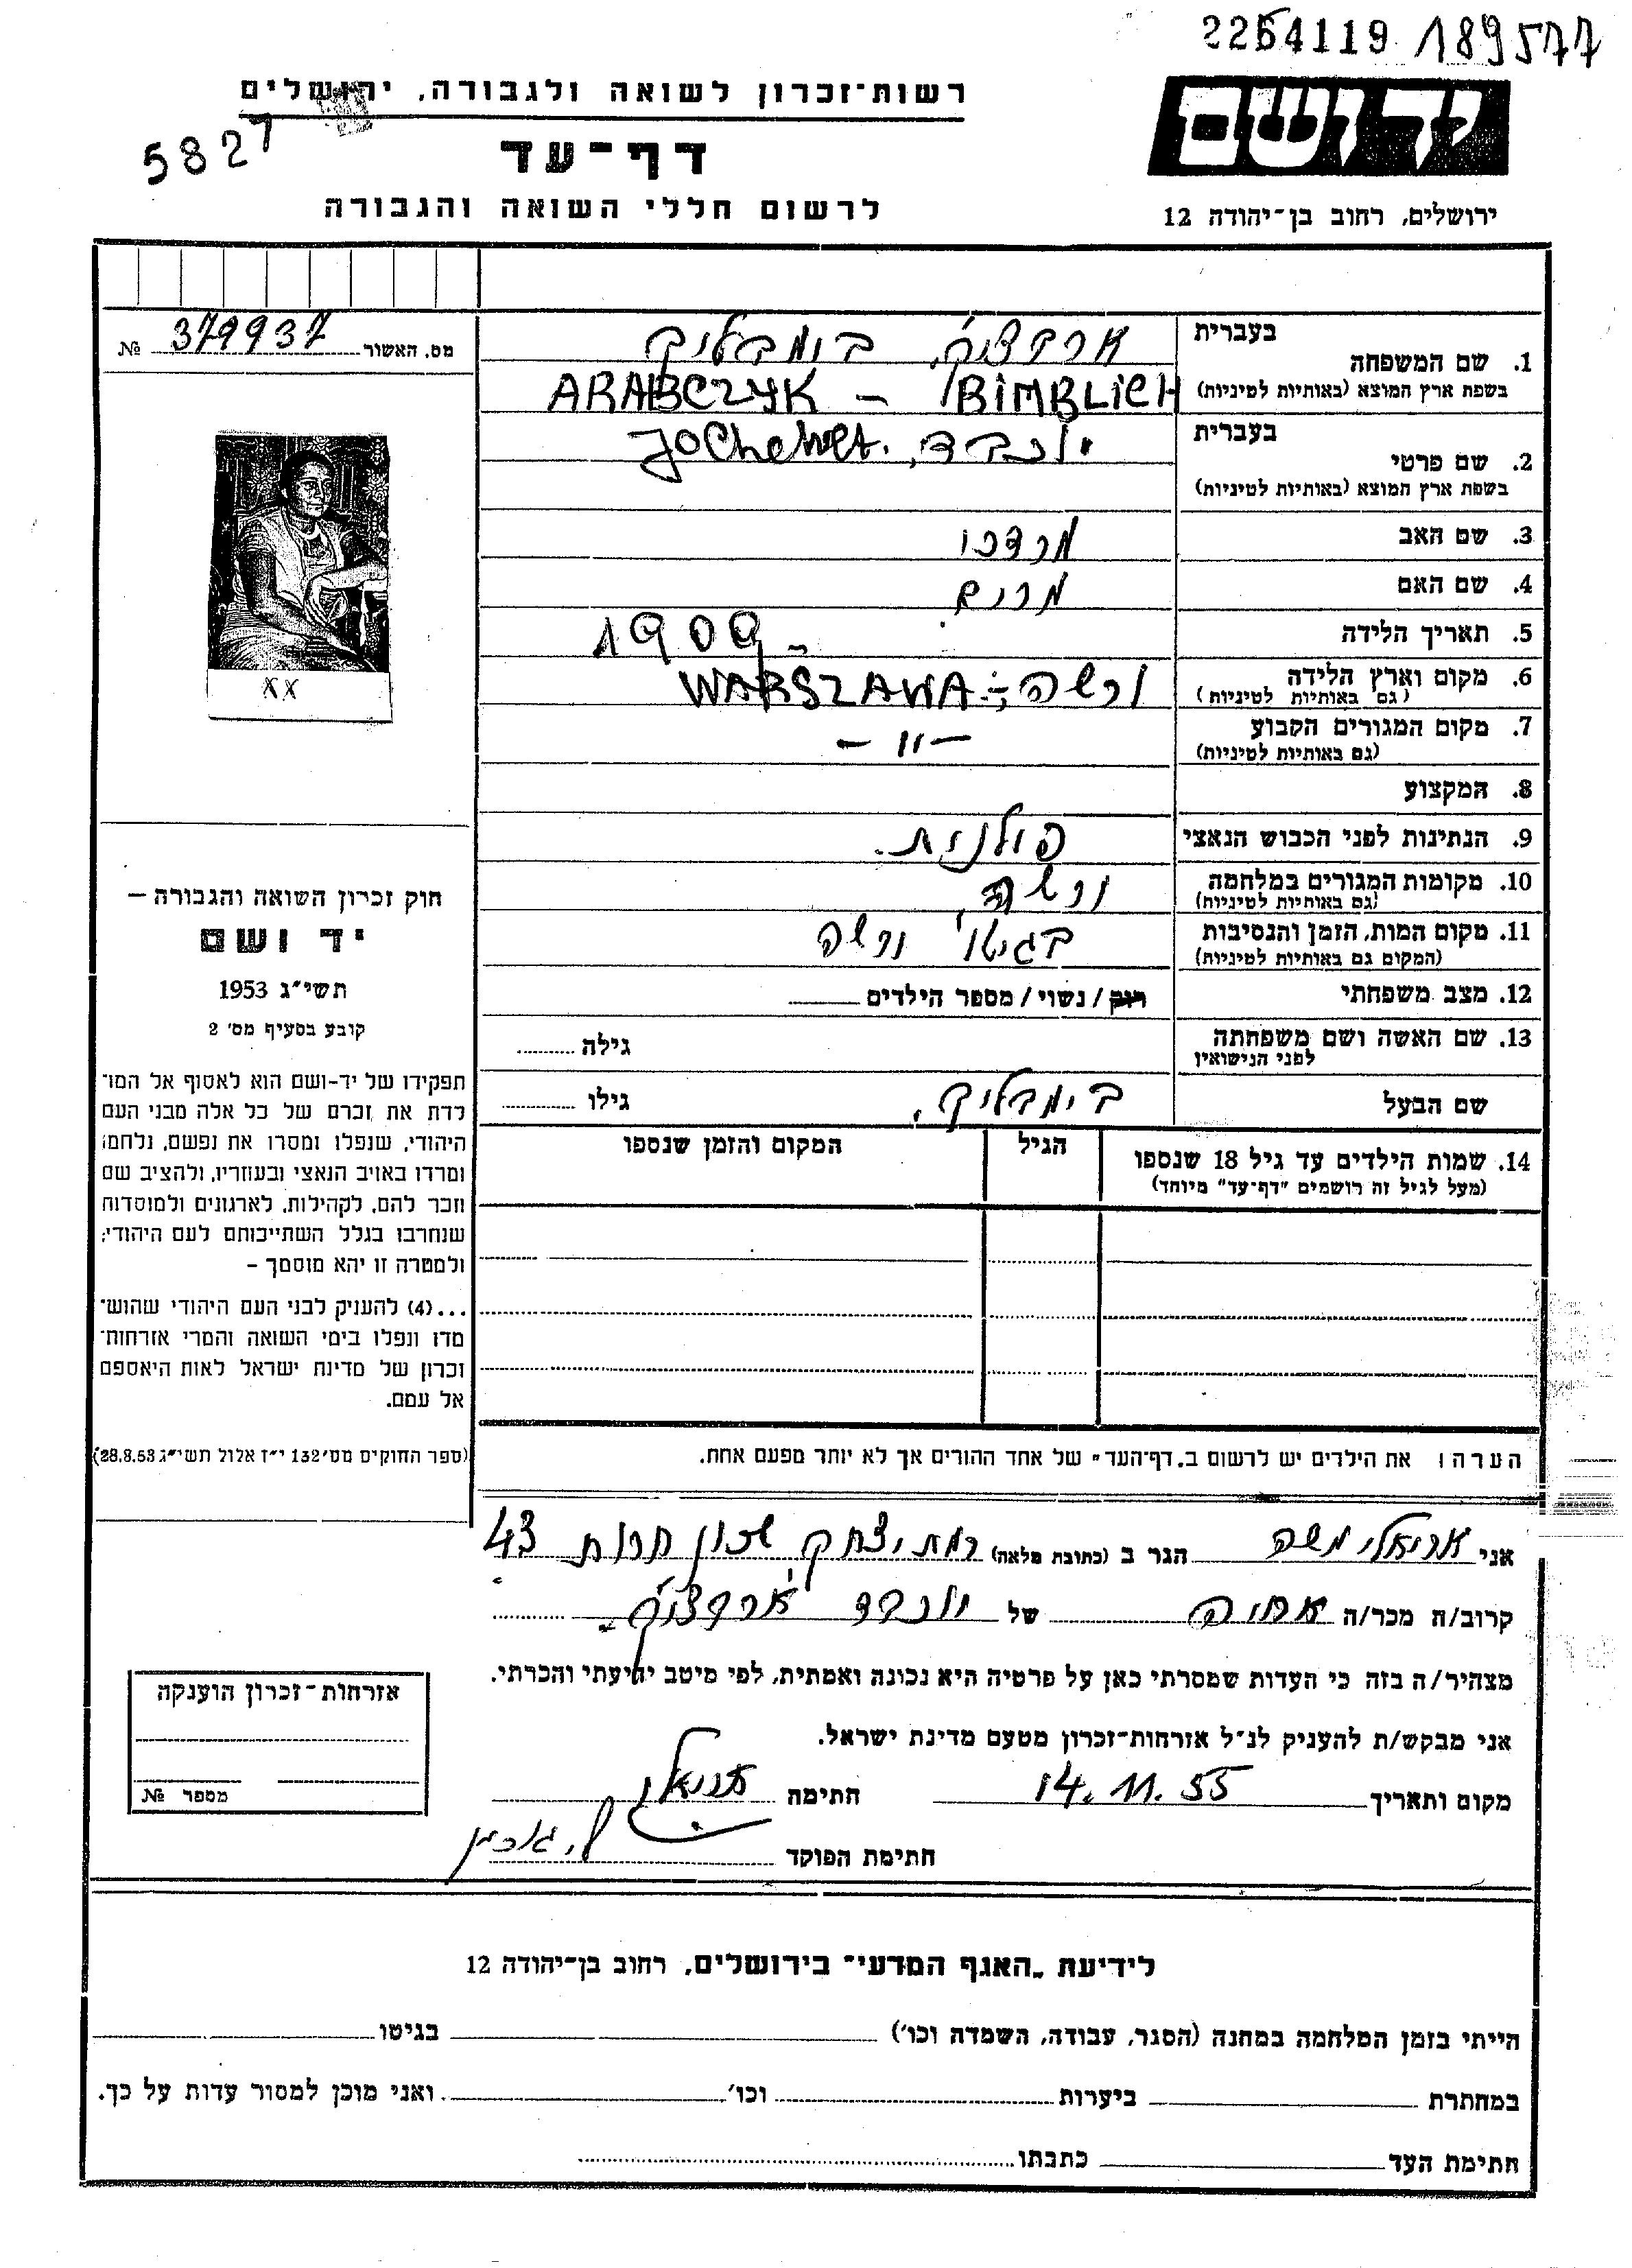 2254119 189577
רשות־זכרון לשואה ולגבורה, ירושלים
5827
דף־עד
לרשום חללי השואה והגבורה
יד ושם
ירושלים, רחוב בן־יהודה 12
מס. האשור 379937 №
1. שם המשפחה
בעברית ארבצ'יק, בימבליך
בשפת ארץ המוצא (באותיות לטיניות) ARABCZYK - BIMBLICH
2. שם פרטי
בעברית יוכבד, Jochewet.
בשפת ארץ המוצא (באותיות לטיניות)
3. שם האב מרדכי
4. שם האם מרים
5. תאריך הלידה 1909
6. מקום וארץ הלידה ורשה - WARSZAWA
(גם באותיות לטיניות)
7. מקום המגורים הקבוע - 11 -
(גם באותיות לטיניות)
8. המקצוע
9. הנתינות לפני הכבוש הנאצי פולנית.
10. מקומות המגורים במלחמה ורשה,
(גם באותיות לטיניות)
11. מקום המות, הזמן והנסיבות בגיטו ורשה
(המקום גם באותיות לטיניות)
12. מצב משפחתי רוק / נשוי / מספר הילדים
13. שם האשה ושם משפחתה גילה
לפני הנישואין
שם הבעל בימבליך, גילו
14. שמות הילדים עד גיל 18 שנספו הגיל המקום והזמן שנספו
(מעל לגיל זה רושמים "דף־עד" מיוחד)
XX
חוק זכרון השואה והגבורה –
יד ושם
תשי"ג 1953
קובע בסעיף מס' 2
תפקידו של יד-ושם הוא לאסוף אל המו־
לדת את זכרם של כל אלה מבני העם
היהודי, שנפלו ומסרו את נפשם, נלחמו
ומרדו באויב הנאצי ובעוזריו, ולהציב שם
וזכר להם, לקהילות, לארגונים ולמוסדות
שנחרבו בגלל השתייכותם לעם היהודי;
ולמטרה זו יהא מוסמך –
...(4) להעניק לבני העם היהודי שהוש־
מדו ונפלו בימי השואה והמרי אזרחות־
זכרון של מדינת ישראל לאות היאספם
אל עמם.
(ספר החוקים מס' 132 י"ז אלול תשי"ג 28.8.53)
הערה: את הילדים יש לרשום ב„דף־העד" של אחד ההורים אך לא יותר מפעם אחת.
אני אריאלי משה הגר ב (כתובת מלאה) רמת יצחק שכון חרות 43
קרוב/ה מכר/ה אחיה של יוכבד ארבצ'יק
מצהיר/ה בזה כי העדות שמסרתי כאן על פרטיה היא נכונה ואמתית, לפי מיטב ידיעתי והכרתי.
אני מבקש/ת להעניק לנ"ל אזרחות־זכרון מטעם מדינת ישראל.
מקום ותאריך 14.11.55 חתימה אריאלי
חתימת הפוקד
אזרחות־זכרון הוענקה
מספר №
לידיעת „האגף המדעי" בירושלים, רחוב בן־יהודה 12
הייתי בזמן המלחמה במחנה (הסגר, עבודה, השמדה וכו') בגיטו
במחתרת ביערות וכו' ואני מוכן למסור עדות על כך.
חתימת העד כתבתו